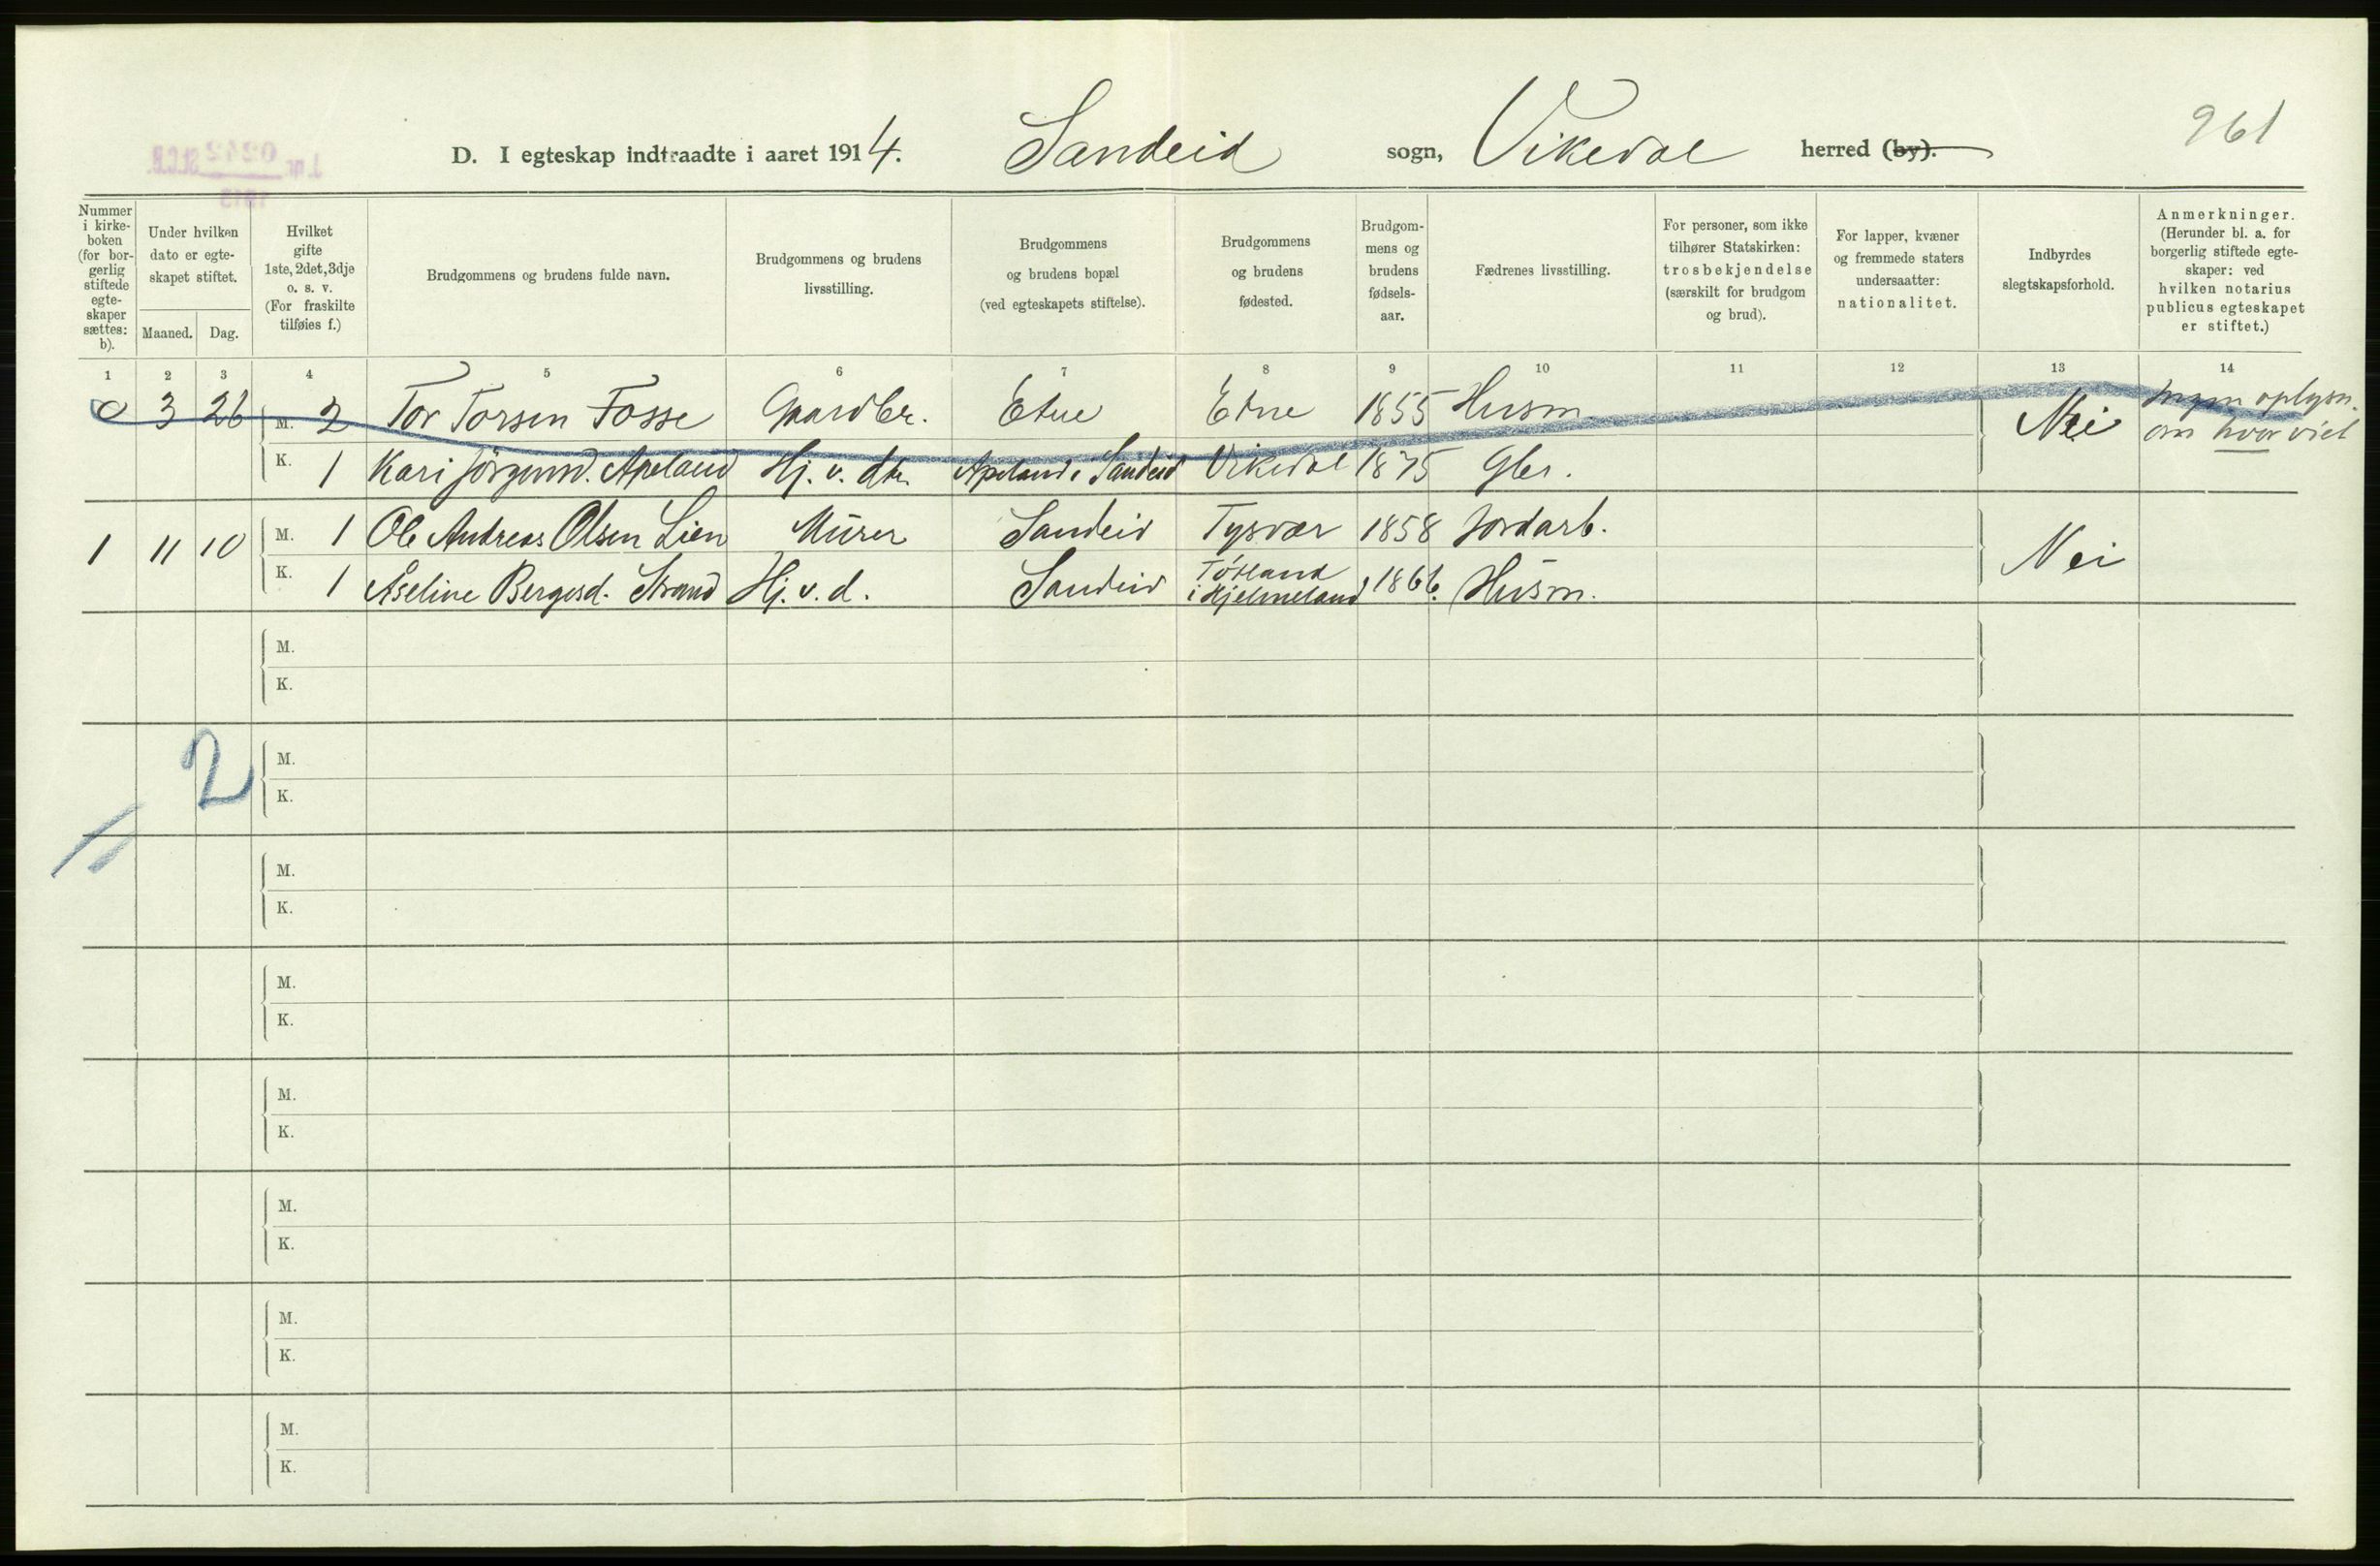 D. I egteskap indtraadte i aaret 1914. Sandeid sogn, Vikedal herred (by). 961
Nummer
i kirke-
boken
(for bor-
gerlig
stiftede
egte-
skaper
sættes:
b).
Under hvilken
dato er egte-
skapet stiftet.
Maaned. Dag.
Hvilket
gifte
1ste, 2det, 3dje
o. s. v.
(For fraskilte
tilføies f.)
Brudgommens og brudens fulde navn.
Brudgommens og brudens
livsstilling.
Brudgommens
og brudens bopæl
(ved egteskapets stiftelse).
Brudgommens
og brudens
fødested.
Brudgom-
mens og
brudens
fødsels-
aar.
Fædrenes livsstilling.
For personer, som ikke
tilhører Statskirken:
trosbekjendelse
(særskilt for brudgom
og brud).
For lapper, kvæner
og fremmede staters
undersaatter:
nationalitet.
Indbyrdes
slegtskapsforhold.
Anmerkninger.
(Herunder bl. a. for
borgerlig stiftede egte-
skaper: ved
hvilken notarius
publicus egteskapet
er stiftet.)
1 2 3 4 5 6 7 8 9 10 11 12 13 14
0 3 26 M. 2 Tor Torsen Fosse Gaardbr. Etne Etne 1855 Husm. Nei Ingen oplysn.
om hvor viet
K. 1 Kari Jörgensd. Apeland Hj. v. dtr. Apeland i Sandeid Vikedal 1875 Gbr.
1 11 10 M. 1 Ole Andreas Olsen Lien Murer Sandeid Tysvær 1858 Jordarb. Nei
K. 1 Aseline Bergesd. Strand Hj. v. d. Sandeid Tøtland
i Hjelmeland 1866. Husm.
M.
K.
2
M.
K.
M.
K.
M.
K.
M.
K.
M.
K.
M.
K.
M.
K.